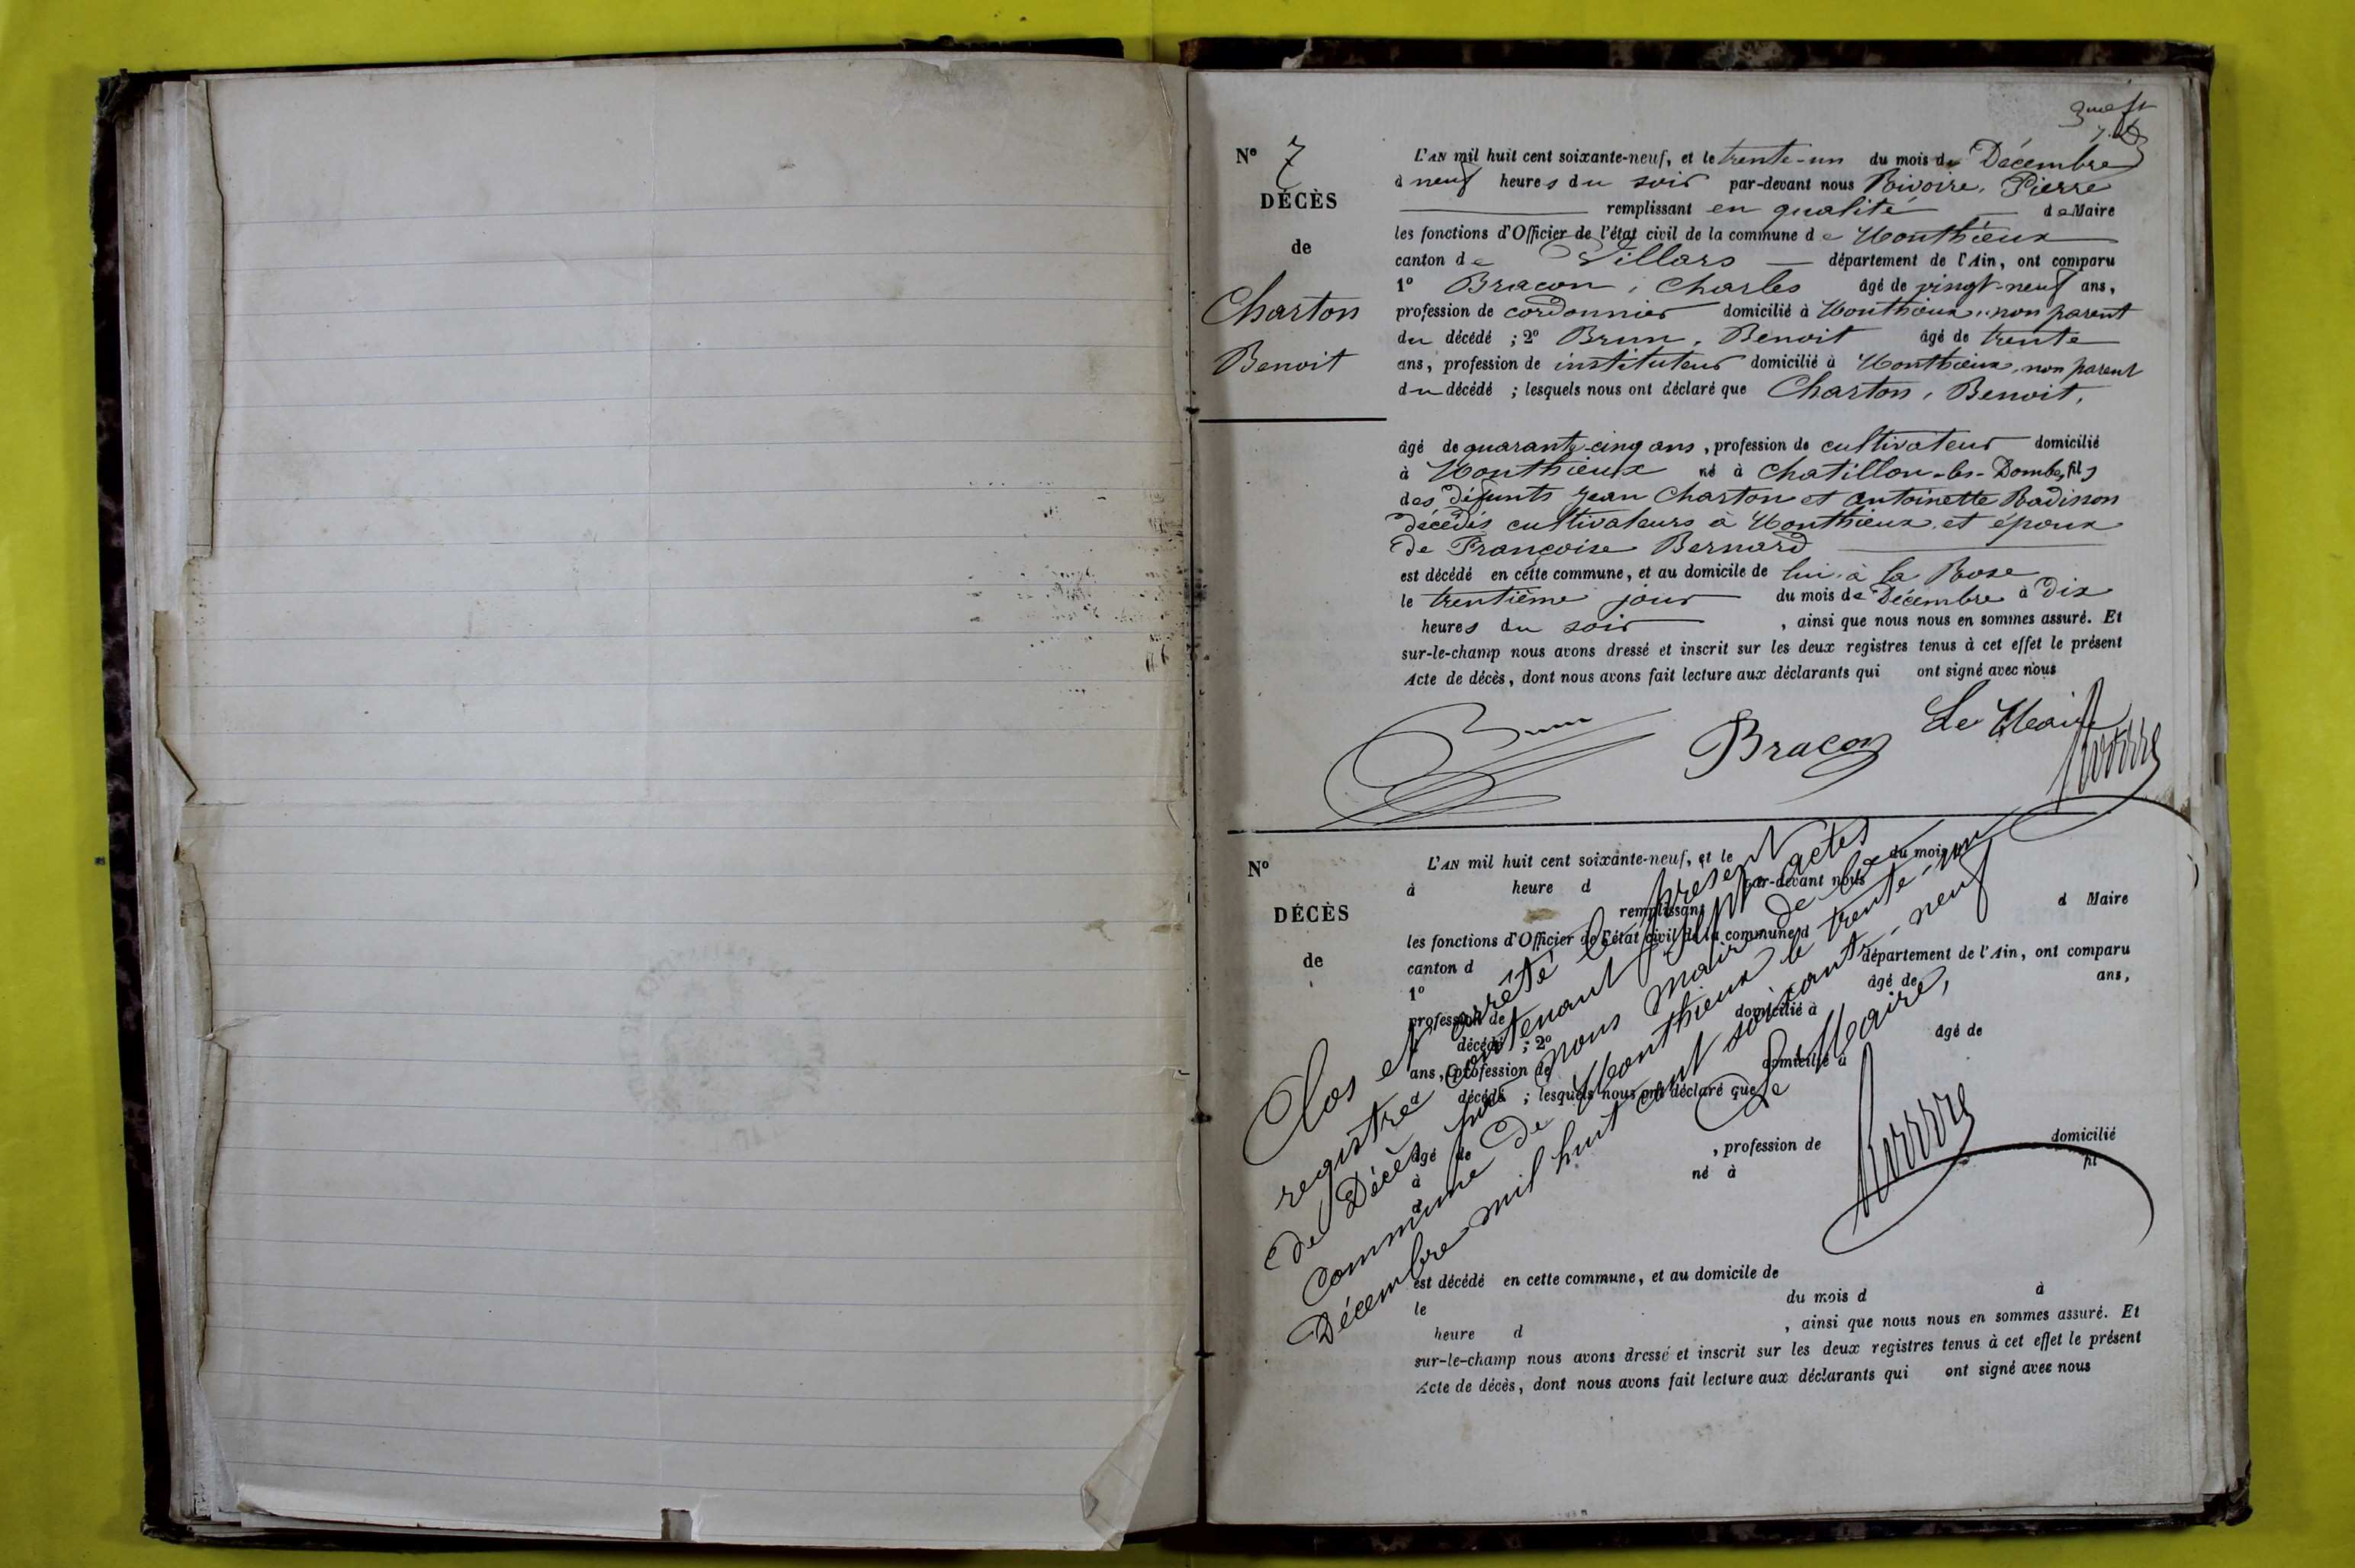 3me ft
N° 7
DÉCÈS
de
Charton
Benoit
L'AN mil huit cent soixante-neuf, et le trente-un du mois de Décembre
à neuf heures du soir par-devant nous Rivoire, Pierre
remplissant en qualité de Maire
les fonctions d'Officier de l'état civil de la commune de Monthieux
canton de Villars département de l'Ain, ont comparu
1° Bracon, Charles âgé de vingt-neuf ans,
profession de cordonnier domicilié à Monthieux, non parent
du décédé ; 2° Brun, Benoit âgé de trente
ans, profession de instituteur domicilié à Monthieux, non parent
du décédé ; lesquels nous ont déclaré que Charton, Benoit,
âgé de quarante-cinq ans, profession de cultivateur domicilié
à Monthieux né à Chatillon-les-Dombes, fils
des défunts Jean Charton et Antoinette Badinon
décédés cultivateurs à Monthieux, et époux
de Françoise Bernard
est décédé en cette commune, et au domicile de lui, à la Rose
le trentième jour du mois de Décembre à dix
heures du soir , ainsi que nous nous en sommes assuré. Et
sur-le-champ nous avons dressé et inscrit sur les deux registres tenus à cet effet le présent
Acte de décès, dont nous avons fait lecture aux déclarants qui ont signé avec nous
Brun Bracon Le Maire
Rivoire
N°
DÉCÈS
de
L'AN mil huit cent soixante-neuf, et le du mois
à heure d par-devant nous
remplissant d Maire
les fonctions d'Officier de l'état civil de la commune d
canton d département de l'Ain, ont comparu
1° âgé de ans,
profession de domicilié à
décédé ; 2° âgé de
ans, profession de domicilié à
d décédé ; lesquels nous ont déclaré que
âgé de , profession de domicilié
à né à fil
d
est décédé en cette commune, et au domicile de
le du mois d à
heure d , ainsi que nous nous en sommes assuré. Et
sur-le-champ nous avons dressé et inscrit sur les deux registres tenus à cet effet le présent
Acte de décès, dont nous avons fait lecture aux déclarants qui ont signé avec nous
Clos et arrêté le présent
registre contenant sept actes
de Décès par nous Maire de la
Commune de Monthieux le trente-un
Décembre mil huit cent soixante-neuf
Le Maire,
Rivoire